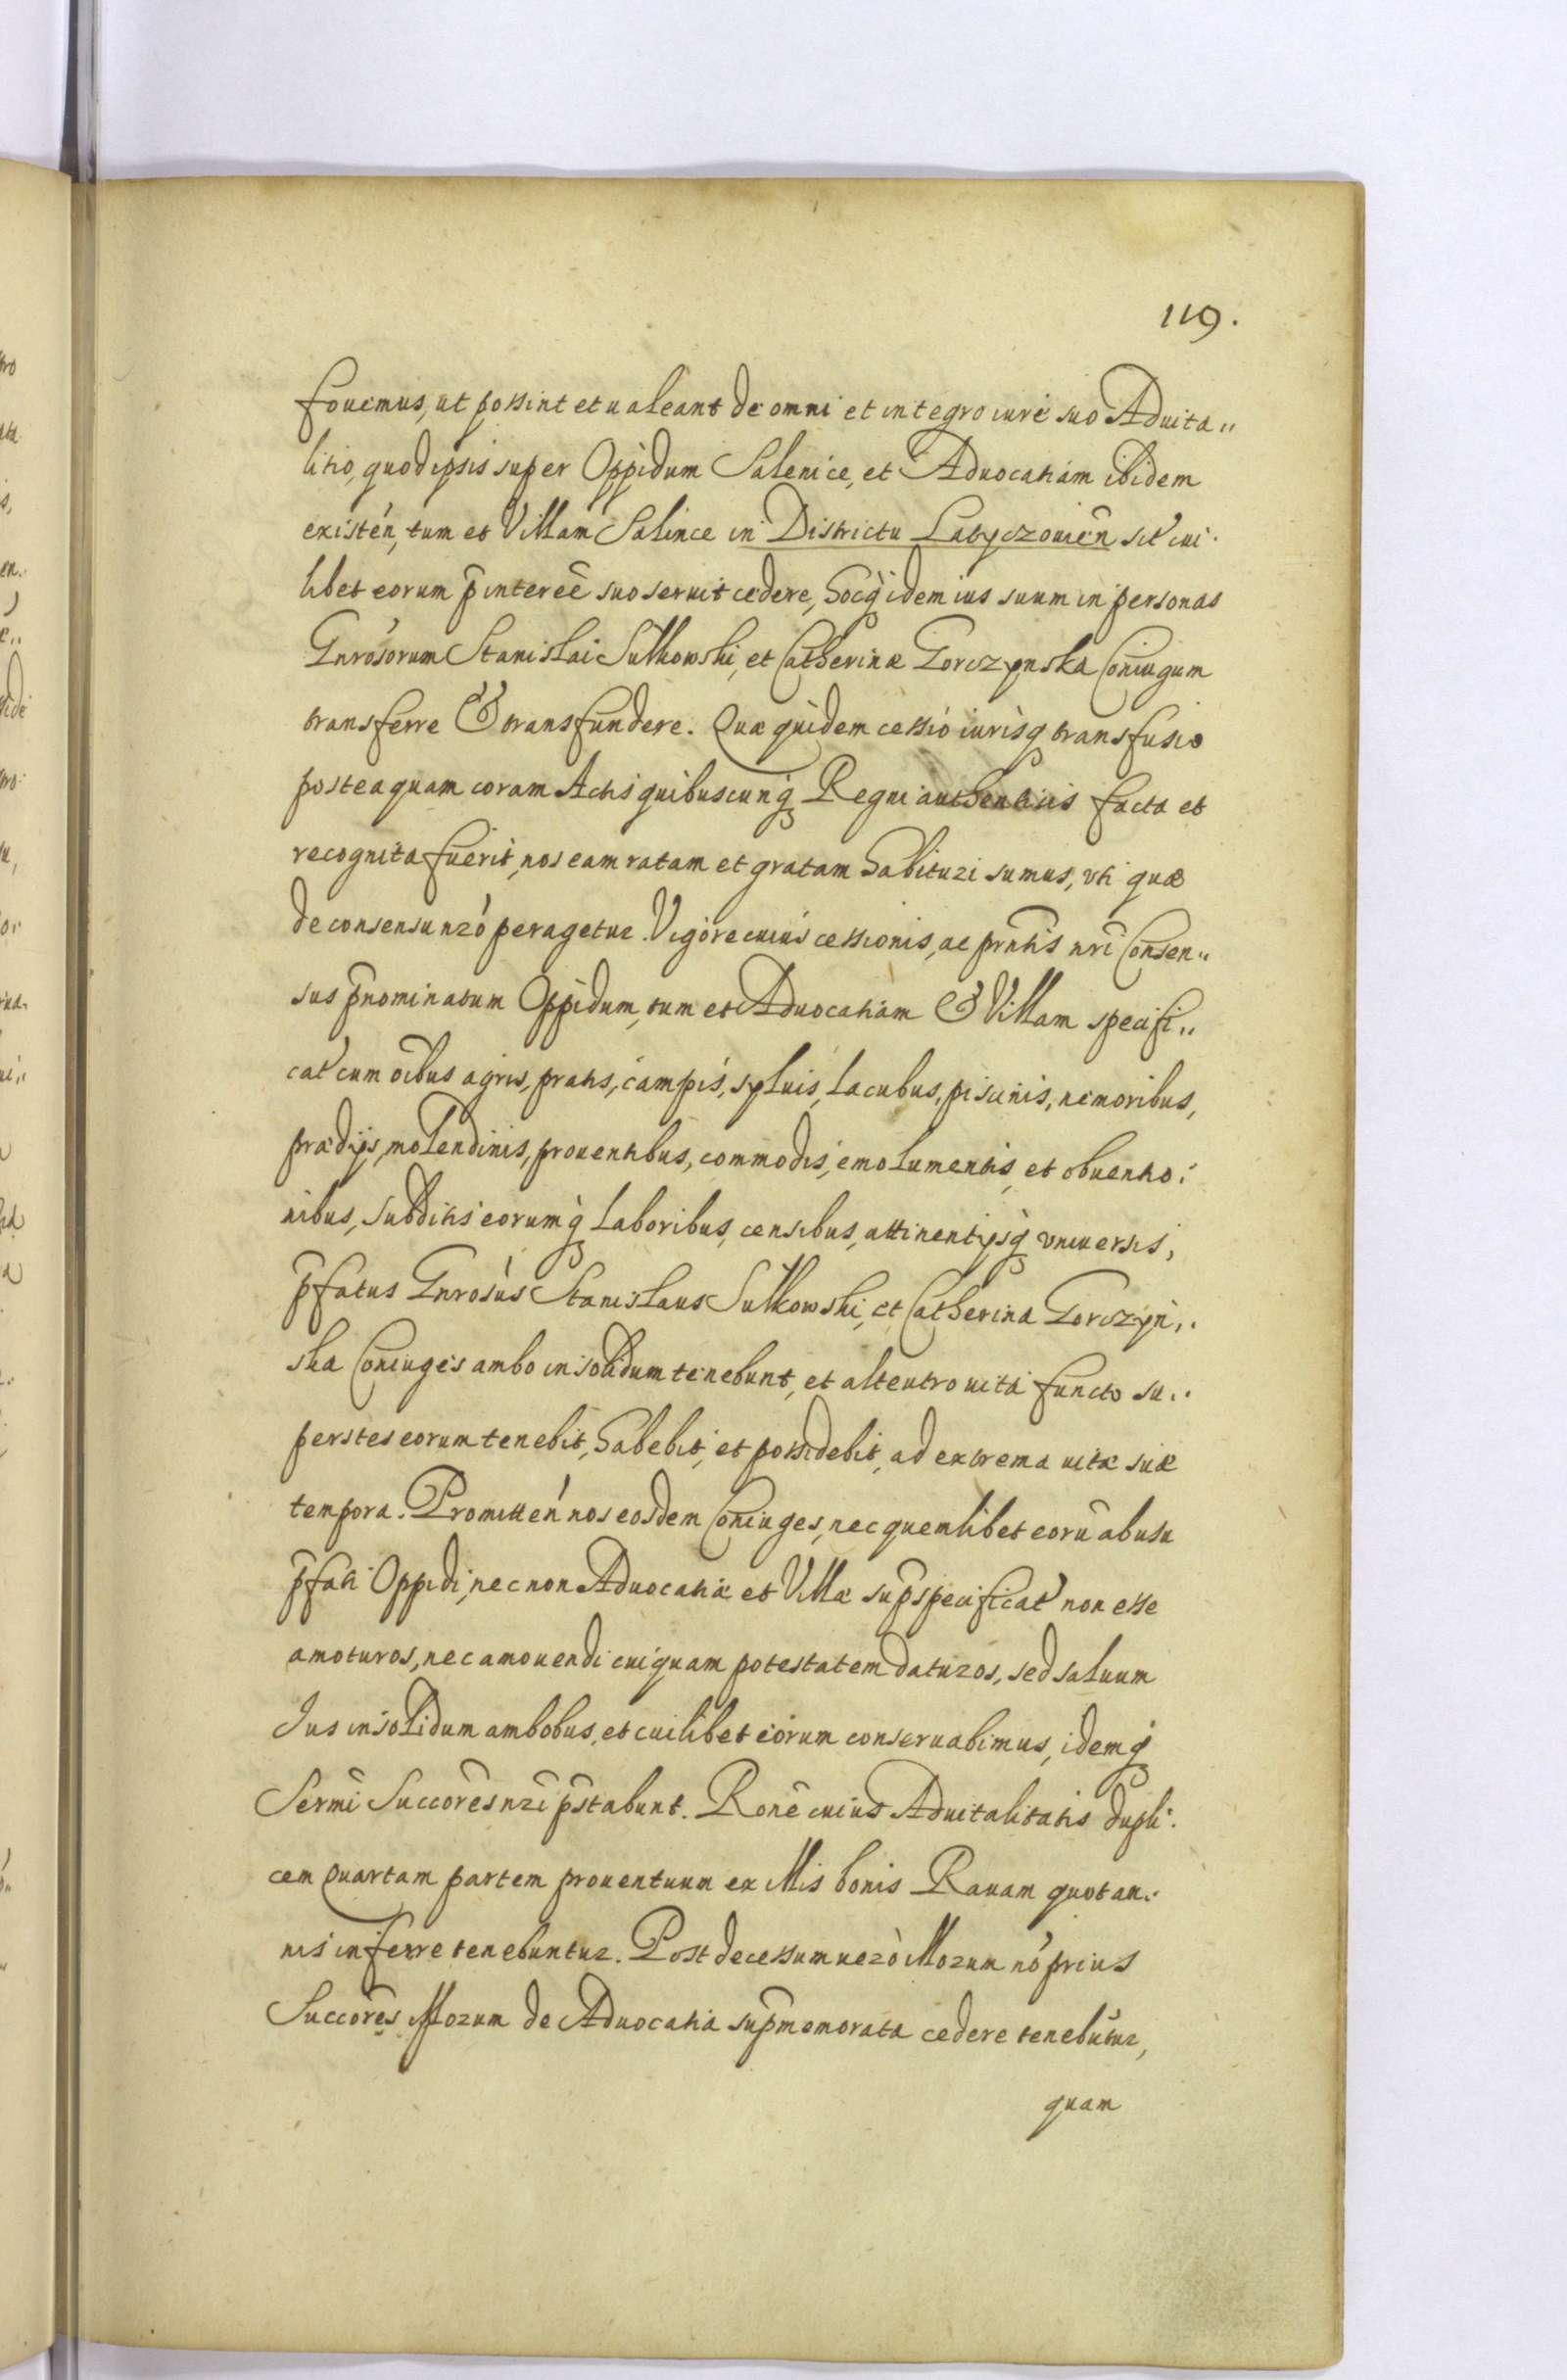 119.
fouemus, ut possint et ualeant de omni et integro iure suo Aduita„
litio, quod ipsis super Oppidum Salenice, et Aduocatiam ibidem
existen̄, tum et Villam Salince in Districtu Latyczouien̄ sit̕ cui„
libet eorum p̄ interēe suo seruit cedere, hocq̢ idem ius suum in personas
Gnrōsorum Stanislai Sulkowski, et Catherinæ Gorczynska Coniugum
transferre & transfundere. Quæ quidem cessio iurisq̢ transfusio
posteaquam coram Actis quibuscunq̢ Regni authenticis facta et
recognita fuerit, nos eam ratam et gratam habituri sumus, vti quæ
de consensu nrō peragetur. Vigore cuius cessionis, ac prn̄tis nrī Consen„
sus p̄nominatum Oppidum, tum et Aduocatiam & Villam specifi„
cat̕ cum oībus agris, pratis, campis, syluis, lacubus, piscinis, nemoribus,
prædijs, molendinis, prouentibus, commodis, emolumentis, et obuentio„
nibus, subditis eorumq̢ laboribus, censibus, attinentijsq̢ vniuersis,
p̄fatus Gnrōsus Stanislaus Sulkowski, et Catherina Gorczyn„
ska Coniuges ambo in solidum tenebunt, et alteutro uita functo su„
perstes eorum tenebit, habebit, et possidebit, ad extrema uitæ suæ
tempora. Promitten̄ nos eosdem Coniuges, nec quemlibet eorū ab usu
p̄fati Oppidi, nec non Aduocatiæ et Villæ sup̄specificat̕ non esse
amoturos, nec amouendi cuiquam potestatem daturos, sed saluum
Ius in solidum ambobus, et cuilibet eorum conseruabimus, idemq̢
Sermī Succorēs nrī p̄stabunt. Ronē cuius Aduitalitatis dupli„
cem quartam partem prouentuum ex illis bonis Rauam quotan„
nis inferre tenebuntur. Post decessum uero illorum nō prius
Succorēs illorum de Aduocatia sup̄memorata cedere tenebūtur,
quam